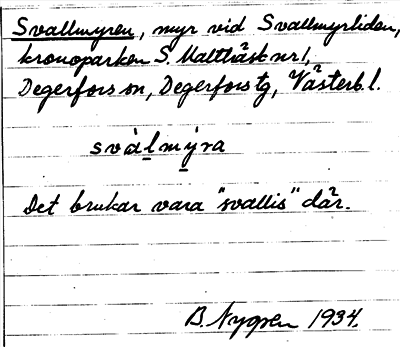 Svallmyren, myr vid Svallmyrliden,
kronoparken S. Malthäsk nr 1,
Degerfors sn, Degerfors tg, Västerb. l.
svàlmýra
Det brukar vara "svallis" där.
B. Nygren 1934.